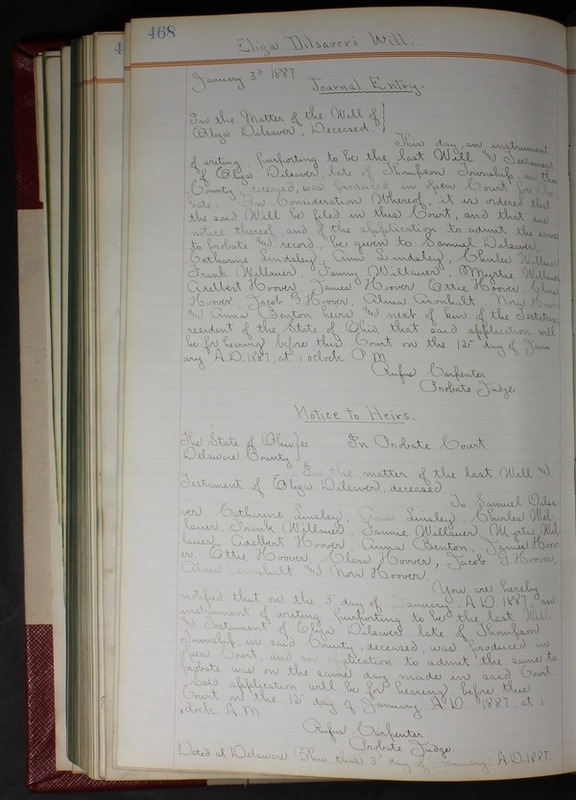 468
Eliza Dilsaver's Will.
January 3d 1887.
Journal Entry.
In the Matter of the Will of
Eliza Dilsaver, Deceased.
This day, an instrument
of writing, purporting to be the last Will & Testament
of Eliza Dilsaver, late of Thompson Township, in this
County, deceased, was produced in open Court for Pro
bate; On Consideration Whereof, it is ordered that
the said Will be filed in this Court, and that due
notice thereof, and of the application to admit the same
to probate & record, be given to Samuel Dilsaver,
Catharine Lindsley, Ann Lindsley, Charles Willauer
Frank Willauer, Fanny Willauer, Myrtie Willauer
Adelbert Hoover, James Hoover, Ettie Hoover, Clara
Hoover, Jacob G Hoover, Alma Aronhalt, Nora Hoover
& Anna Benton heirs & next of kin of the Testatrix
resident of the State of Ohio, that said application will
be for hearing before this Court on the 12" day of Janu-
ary A.D. 1887, at 1 oclock P.M.
Rufus Carpenter
Probate Judge
Notice to Heirs.
The State of Ohio ss In Probate Court
Delaware County
In the matter of the last Will &
Testament of Eliza Dilsaver, deceased
To Samuel Dilsa-
ver, Catharine Linsley, Linsley, Charles Wil-
lauer, Frank Willauer, Fannie Willauer, Myrtie Wil
lauer, Adelbert Hoover, Anna Benton, James Hoov-
er, Ettie Hoover, Clara Hoover, Jacob G Hoover,
Alma Aronhalt & Nora Hoover.
You are hereby
notified that on the 3" day of January, A.D. 1887, an
instrument of writing, purporting to be the last Will
& Testament of Eliza Dilsaver late of Thompson
Township, in said County, deceased, was produced in
open Court, and an application to admit the same to
probate was on the same day made in said Court.
Said application will be for hearing before this
Court on the 12" day of January, A.D. 1887 at 1
oclock A.M
Rufus Carpenter
Probate Judge.
Dated at Delaware, Ohio, this 3" day of January. A.D. 1887.